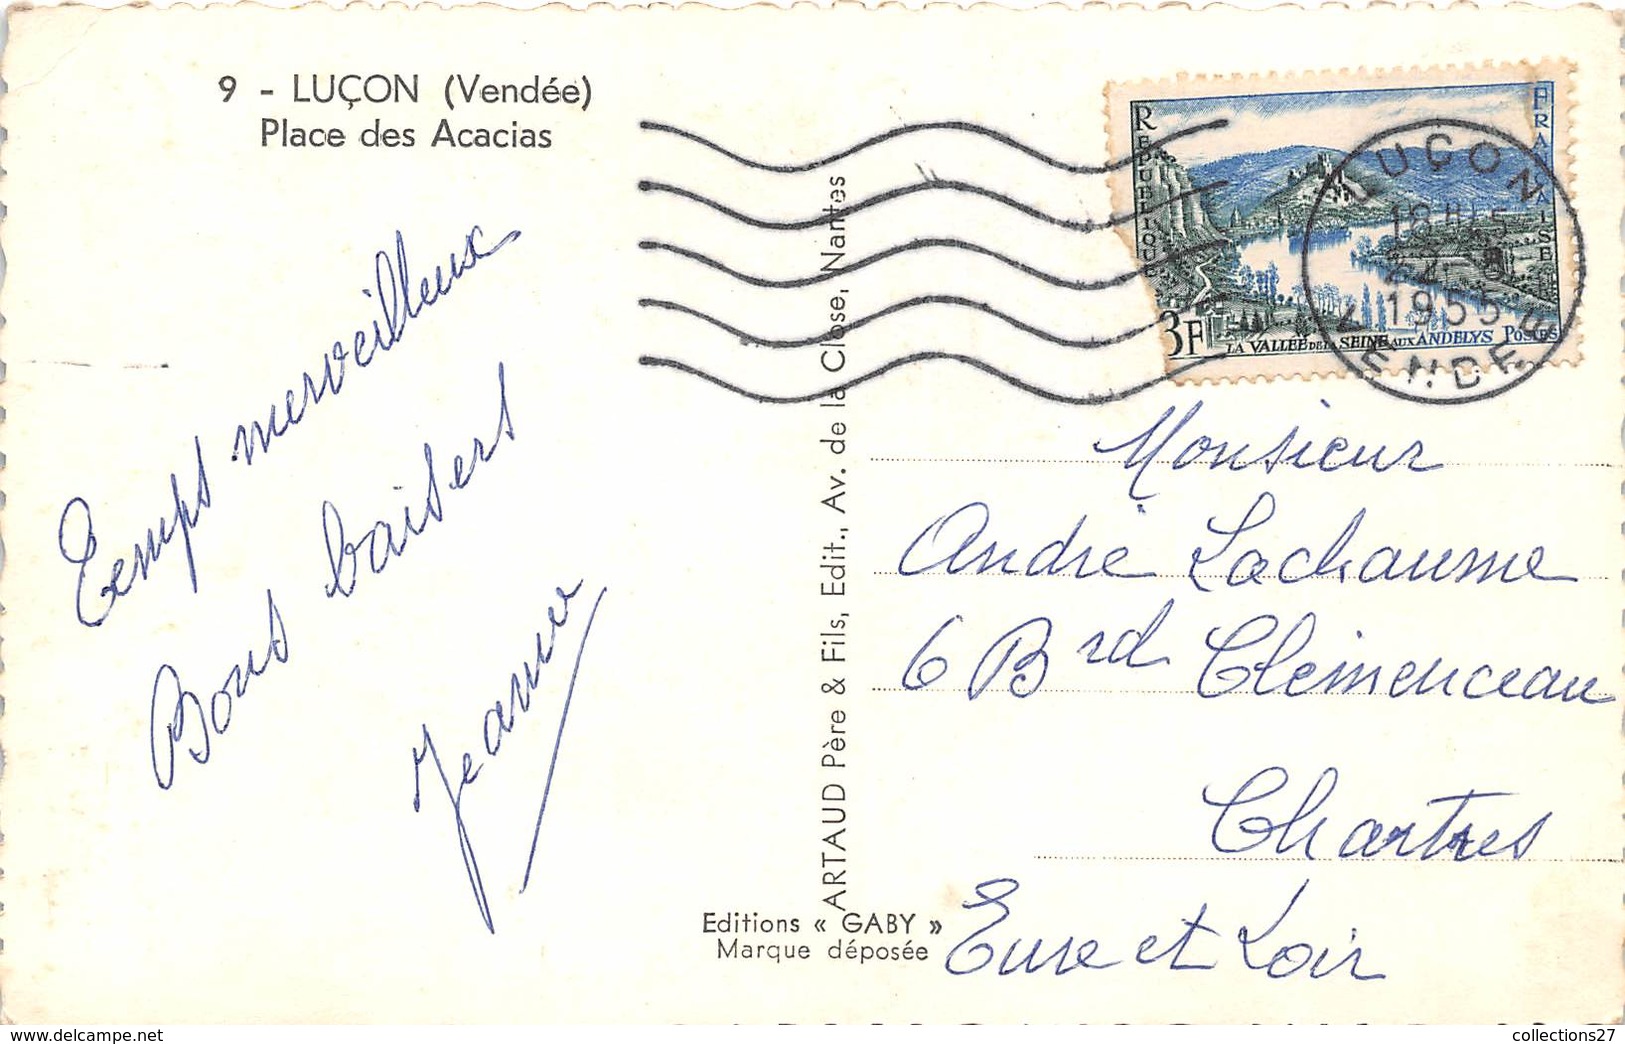 9 - LUÇON (Vendée)
Place des Acacias
Temps merveilleux
Bons baisers
Jeanne
ARTAUD Père & Fils, Edit., Av. de la Close, Nantes
Editions « GABY »
Marque déposée
REPUBLIQUE
FRANÇAISE
3F
LA VALLEE DE LA SEINE AUX ANDELYS POSTES
LUÇON
1955
VENDEE
Monsieur
André Lachaume
6 Brd Clemenceau
Chartres
Eure et Loir
www.delcampe.net
collections27